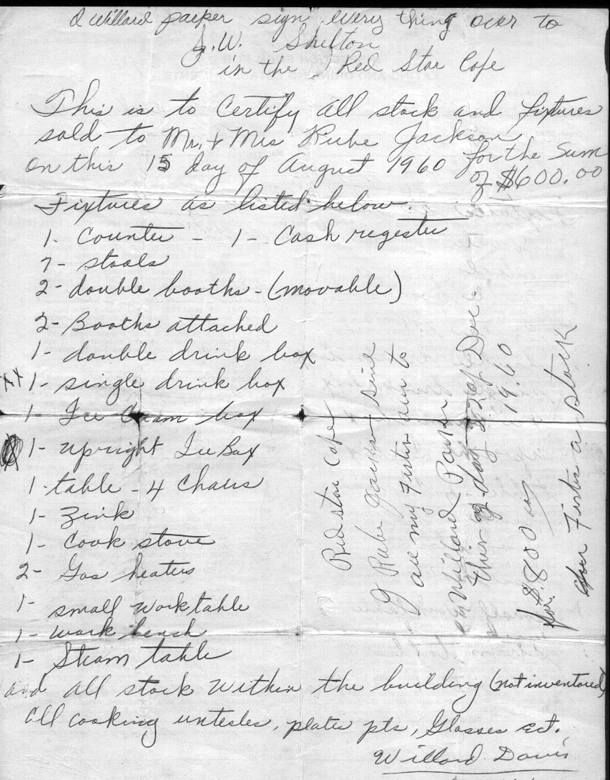 I Willard parker sign every thing over to
J.W. Shelton
in the Red Star Cafe
This is to Certify all stock and fixtures
sold to Mr. & Mrs Rube Jackson
on this 15 day of August 1960 for the Sum
of $600.00
Fixtures as listed below.
1- Counter - 1- Cash register
7- stools
2- double booths - (movable)
2- Booths attached
1- double drink box
xx 1- single drink box
1- Ice Cream box
1- upright Ice Box
1- table - 4 Chairs
1- Zink
1- Cook stove
2- Gas heaters
1- small worktable
1- work bench
1- Steam table
and all stock within the building (not inventored)
all cooking untesles, plates pts, Glasses ect.
Willard Davis
Red star Cafe
I Rube Jackson
all my
Willard Parker
This day of Dec
1960
for $800
stock